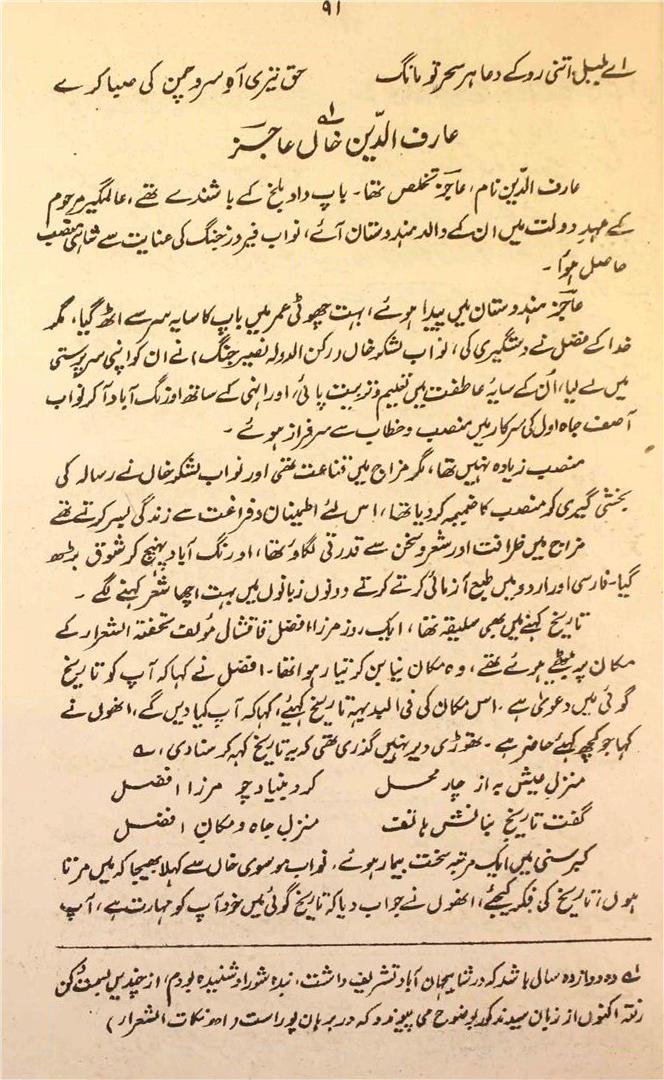 ۹۱
اے بلبل اتنی رو کے دعا ہر سحر تو مانگ حق تیری آہ سرو چمن کی صبا کرے
عارف الدّین خاں عاجز
عارف الدّین نام، عاجز تخلص تھا۔ باپ دادا بلخ کے باشندے تھے، عالمگیر مرحوم
کے عہد دولت میں ان کے والد ہندوستان آئے، نواب فیروز جنگ کی عنایت سے شاہی منصب
حاصل ہوا۔
عاجز ہندوستان میں پیدا ہوئے، بہت چھوٹی عمر میں باپ کا سایہ سر سے اٹھ گیا، مگر
خدا کے فضل نے دستگیری کی، نواب لشکر خاں (رکن الدولہ نصیر جنگ) نے ان کو اپنی سرپرستی
میں لے لیا، اُن کے سایۂ عاطفت میں تعلیم و تربیت پائی، اور انہی کے ساتھ اورنگ آباد آکر نواب
آصف جاہ اول کی سرکار میں منصب و خطاب سے سرفراز ہوئے۔
منصب زیادہ نہیں تھا، مگر مزاج میں قناعت تھی اور نواب لشکر خاں نے رسالہ کی
بخشی گیری کو منصب کا ضمیمہ کر دیا تھا، اس لئے اطمینان و فراغت سے زندگی بسر کرتے تھے
مزاج میں ظرافت اور شعر و سخن سے قدرتی لگاؤ تھا، اورنگ آباد پہنچ کر شوق بڑھ
گیا۔ فارسی اور اردو میں طبع آزمائی کرتے کرتے دونوں زبانوں میں بہت اچھا شعر کہنے لگے۔
تاریخ کہنے میں بھی سلیقہ تھا، ایک روز مرزا افضل قاقشال مؤلف تحفتہ الشعراء کے
مکان پر بیٹھے ہوئے تھے، وہ مکان نیا بن کر تیار ہوا تھا۔ افضل نے کہا کہ آپ کو تاریخ
گوئی میں دعویٰ ہے۔ اس مکان کی فی البدیہہ تاریخ کہئے، کہا کہ آپ کیا دیں گے، انھوں نے
کہا جو کچھ کہئے حاضر ہے۔ تھوڑی دیر نہیں گذری تھی کہ یہ تاریخ کہہ کر سنا دی، ؎
منزل عیش بہ از چار محل کرد بنیاد چو مرزا افضل
گفت تاریخ بنائش ہاتف منزل جاہ و مکان افضل
کبر سنی میں ایک مرتبہ سخت بیمار ہوئے۔ نواب موسوی خاں سے کہلا بھیجا کہ میں مرتا
ہوں، تاریخ کی فکر کیجئے، انھوں نے جواب دیا کہ تاریخ گوئی میں خود آپ کو مہارت ہے، آپ
دہ دوازدہ سالی باشد کہ در شاہجہان آباد تشریف داشت، بندہ شور او شنیدہ بودم، از چندیں بسمت دکن
رفتہ اکنوں از زبان سید مذکور بوضوح می پیوندد کہ در برہان پور است (از نکات الشعراء)